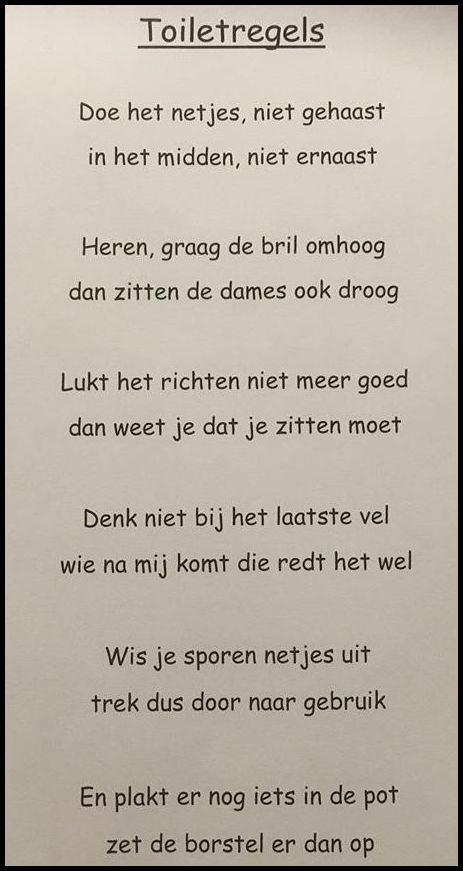 Toiletregels
Doe het netjes, niet gehaast
in het midden, niet ernaast
Heren, graag de bril omhoog
dan zitten de dames ook droog
Lukt het richten niet meer goed
dan weet je dat je zitten moet
Denk niet bij het laatste vel
wie na mij komt die redt het wel
Wis je sporen netjes uit
trek dus door naar gebruik
En plakt er nog iets in de pot
zet de borstel er dan op